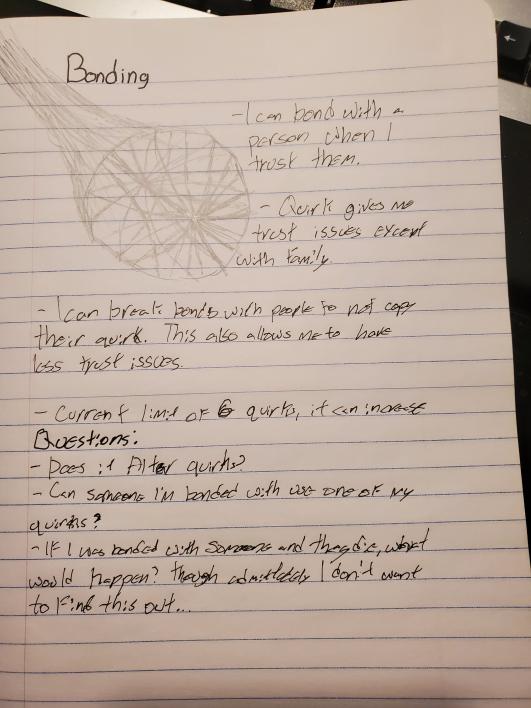 Bonding
- I can bond with a
person when I
trust them.
- Quirk gives me
trust issues except
with family.
- I can break bonds with people to not copy
their quirk. This also allows me to have
less trust issues.
- Current limit of 6 quirks, it can increase
Questions:
- Does it Alter quirks?
- Can someone I'm bonded with use one of my
quirks?
- If I was bonded with someone and they die, what
would happen? though admittedly I don't want
to find this out...